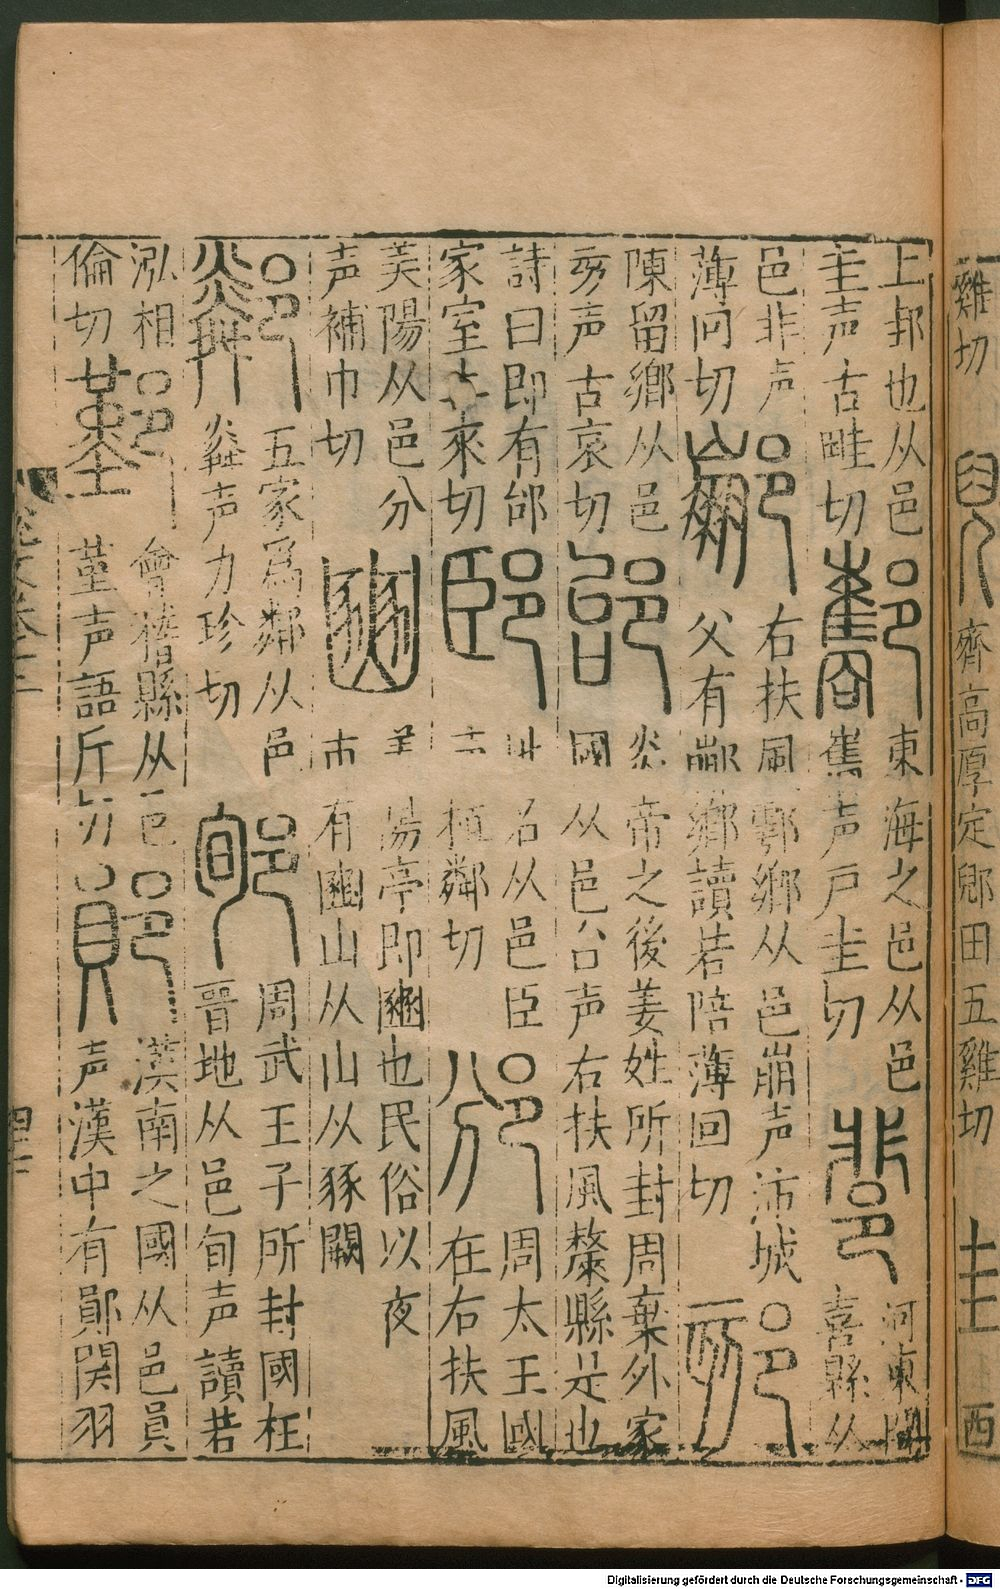 雞切
郳
齊高厚定郳田五雞切
邽
西
上邽也从邑
圭声古畦切
酅
東海之邑从邑
巂声戶圭切
𨛬
河東聞
喜縣从
邑非声
薄问切
䣙
右扶風鄠鄉从邑崩声沛城
父有䣙鄉讀若陪薄回切
郂
陳留鄉从邑
亥声古哀切
邰
炎帝之後姜姓所封周棄外家
國从邑台声右扶風斄縣是也
詩曰即有邰
家室土來切
𨚕
地名从邑臣
植鄰切
邠
周太王國
在右扶風
美陽从邑分
声補巾切
豳
美陽亭即豳也民俗以夜
市有豳山从山从豩闕
鄰
五家爲鄰从邑
粦声力珍切
郇
周武王子所封國在
晉地从邑旬声讀若
泓相
倫切
鄞
會稽縣从邑
堇声語斤切
鄖
漢南之國从邑員
声漢中有鄖関羽
Digitalisierung gefördert durch die Deutsche Forschungsgemeinschaft - DFG